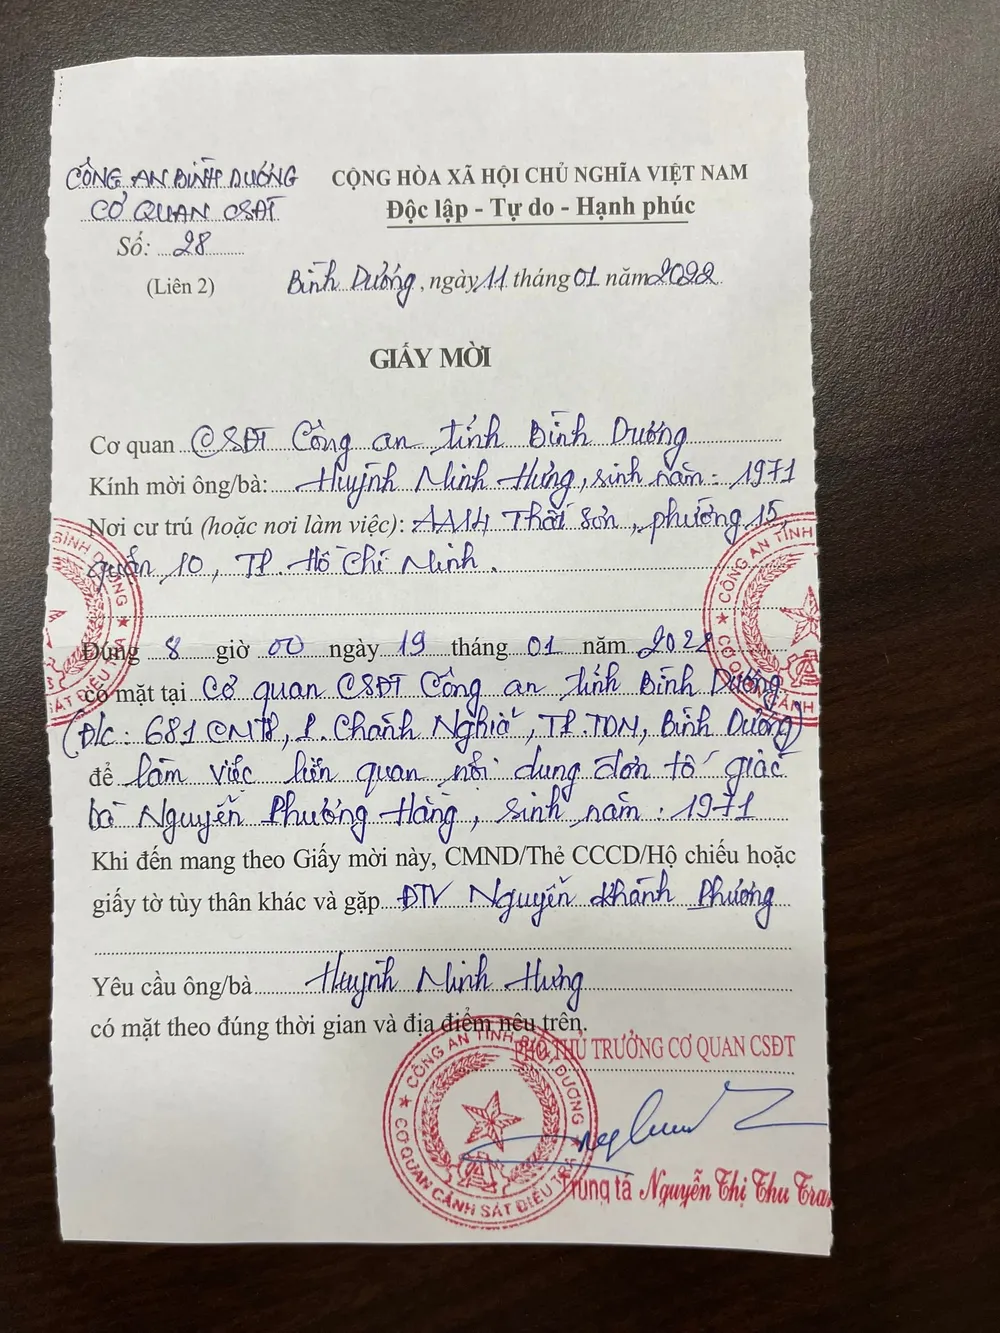 CÔNG AN BÌNH DƯƠNG
CƠ QUAN CSĐT
Số: 28
(Liên 2)
CỘNG HÒA XÃ HỘI CHỦ NGHĨA VIỆT NAM
Độc lập - Tự do - Hạnh phúc
Bình Dương, ngày 11 tháng 01 năm 2022
GIẤY MỜI
Cơ quan CSĐT Công an tỉnh Bình Dương
Kính mời ông/bà: Huỳnh Minh Hưng, sinh năm: 1971
Nơi cư trú (hoặc nơi làm việc): AA14 Thất Sơn, phường 15,
quận 10, TP. Hồ Chí Minh.
Đúng 8 giờ 00 ngày 19 tháng 01 năm 2022
có mặt tại Cơ quan CSĐT Công an tỉnh Bình Dương
(Đ/c: 681 CMT8, P. Chánh Nghĩa, TP. TDM, Bình Dương)
để làm việc liên quan nội dung đơn tố giác
bà Nguyễn Phương Hằng, sinh năm: 1971
Khi đến mang theo Giấy mời này, CMND/Thẻ CCCD/Hộ chiếu hoặc
giấy tờ tùy thân khác và gặp ĐTV Nguyễn Khánh Phương
Yêu cầu ông/bà Huỳnh Minh Hưng
có mặt theo đúng thời gian và địa điểm nêu trên.
PHÓ THỦ TRƯỞNG CƠ QUAN CSĐT
CÔNG AN TỈNH BÌNH DƯƠNG
CƠ QUAN CẢNH SÁT ĐIỀU TRA
Trung tá Nguyễn Thị Thu Tran